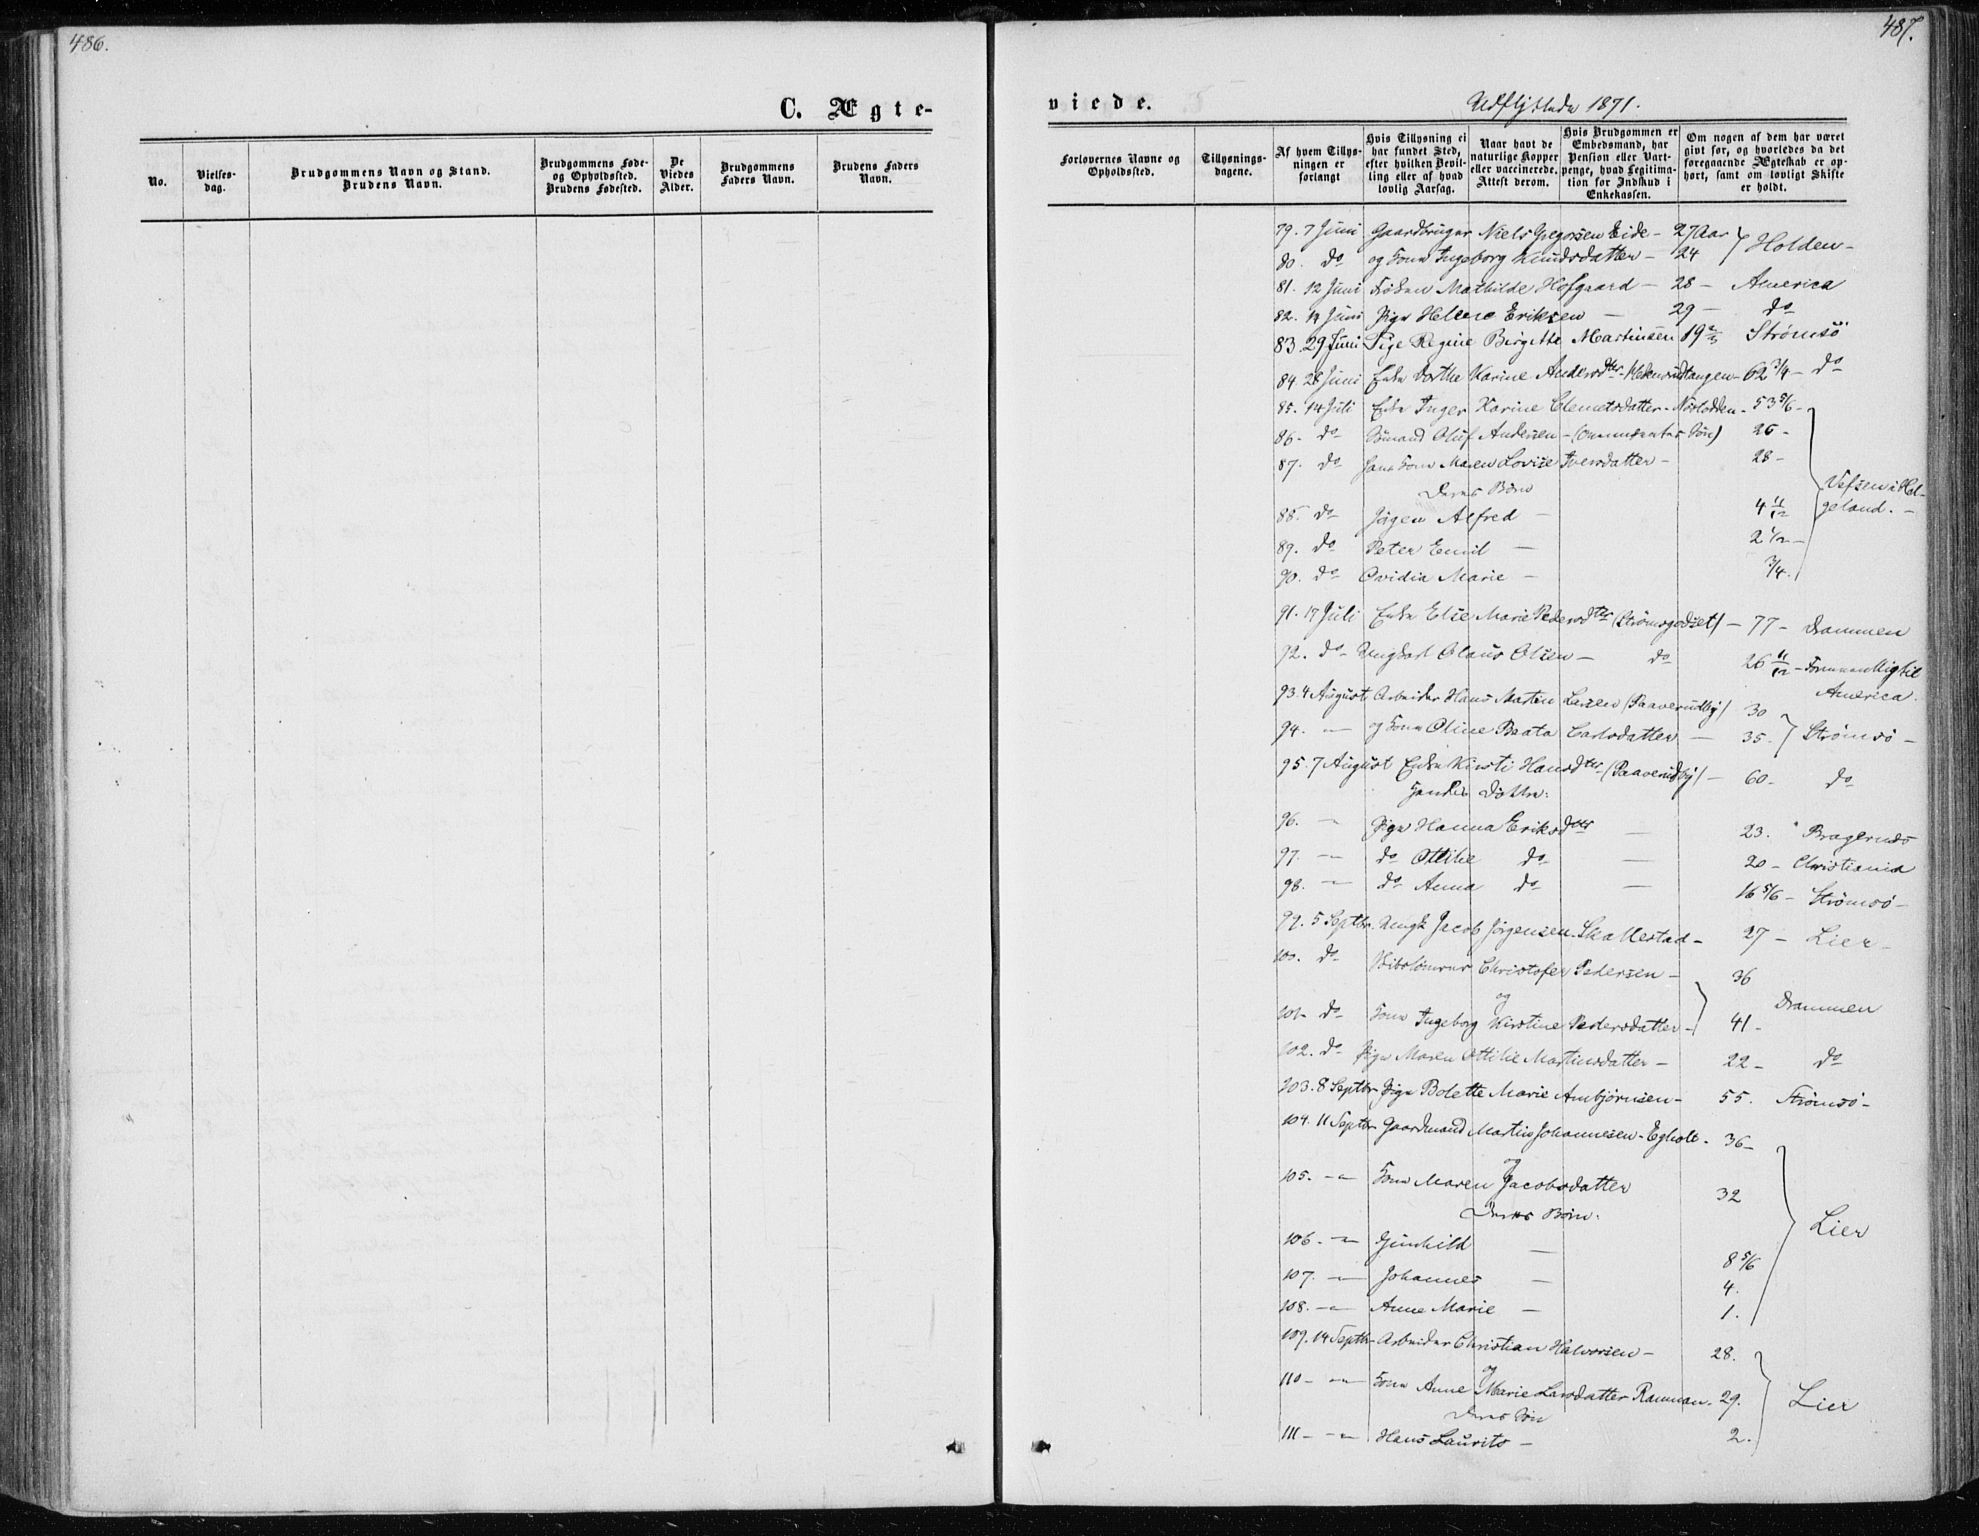 486.
C. Ægte-
No.
Vielses-
dag.
Brudgommens Navn og Stand.
Brudens Navn.
Brudgommens Føde-
og Opholdsted.
Brudens Fødested.
De
Viedes
Alder.
Brudgommens
Faders Navn.
Brudens Faders
Navn.
487.
viede.
Udflyttede 1871.
Forlovernes Navne og
Opholdsted.
Tillysnings-
dagene.
Af hvem Tillys-
ningen er
forlangt
Hvis Tillysning ei
har fundet Sted,
efter hvilken Bevil-
ling eller af hvad
lovlig Aarsag.
Naar havt de
naturlige Kopper
eller vaccinerede.
Attest derom.
Hvis Brudgommen er
Embedsmand, har
Pension eller Vart-
penge, hvad Legitima-
tion for Indskud i
Enkekassen.
Om nogen af dem har været
givt før, og hvorledes da det
foregaaende Ægteskab er op-
hørt, samt om lovligt Skifte
er holdt.
79. 7 Juni Gaardbruger Niels Gregorsen Eide - 27 Aar
80. do og Kone Ingeborg Knudsdatter - 24 Holden -
81. 12 Juni Frøken Mathilde Hofgaard - 28 - America
82. 14 Juni Pige Helene Eriksen - 29 - do
83. 29 Juni Pige Regine Birgitte Martinsen 19 2/3 Strømsö
84. 28 Juni Enke Dorthe Karine Andersdtr - 62 3/4 - do
85. 14 Juli Enke Inger Karine Clemetsdatter - 53 5/6 -
86 - do Sömand Oluf Andersen - 26 -
87. do hans Kone Maren Lovise Iversdatter - 28 -
Deres Börn
Vefsen i Hel-
88. do Jörgen Alfred - 4 11/12 geland. -
89. do Peter Emil - 2 1/2 -
90. do Ovidia Marie - 3/4.
91. 17 Juli Enke Else Marie Pedersdtr (Strömsgodset) - 77 - Drammen
92. do - Ungkarl Olaus Olsen - do 26 11/12 - til
America.
93. 4 August Arbeider Hans Martin Larsen (Paaverudby) 30
94. - og Kone Oline Beata Carlsdatter - 35. Strömsö -
95. 7 August Enke Kirsti Hansdtr (Paaverudby) - 60 - do
hendes Döttre:
96. - Pige Hanna Eriksdtr - 23. Bragernæs
97. - do Ottilie do - 20 - Christiania
98. - do Anna do - 16 5/6 - Strömsö -
99. 5 Septbr. Ungk Jacob Jörgensen Skallestad - 27 - Lier -
100. do Christofer Pedersen - 36
og
Drammen
101 - do Kone Ingeborg Kirstine Pedersdatter - 41 -
102. do Pige Maren Ottilie Martinsdatter - 22 - do
103. 8 Septbr Pige Bolette Marie Ambjörnsen - 55. Strömsö -
104. 11 Septbr Gaardmand Martin Johannesen - Egholt - 36 -
og
105. - Kone Maren Jacobsdatter 32
Deres Börn:
Lier
106. - Gunhild - 8 5/6
107. - Johannes - 4.
108. - Anne Marie - 1.
109. 14 Septbr Arbeider Christian Halvorsen - 28.
og
110 - Kone Anne Marie Larsdatter - 29. Lier
Deres Sön
111 - Hans Laurits - 2.